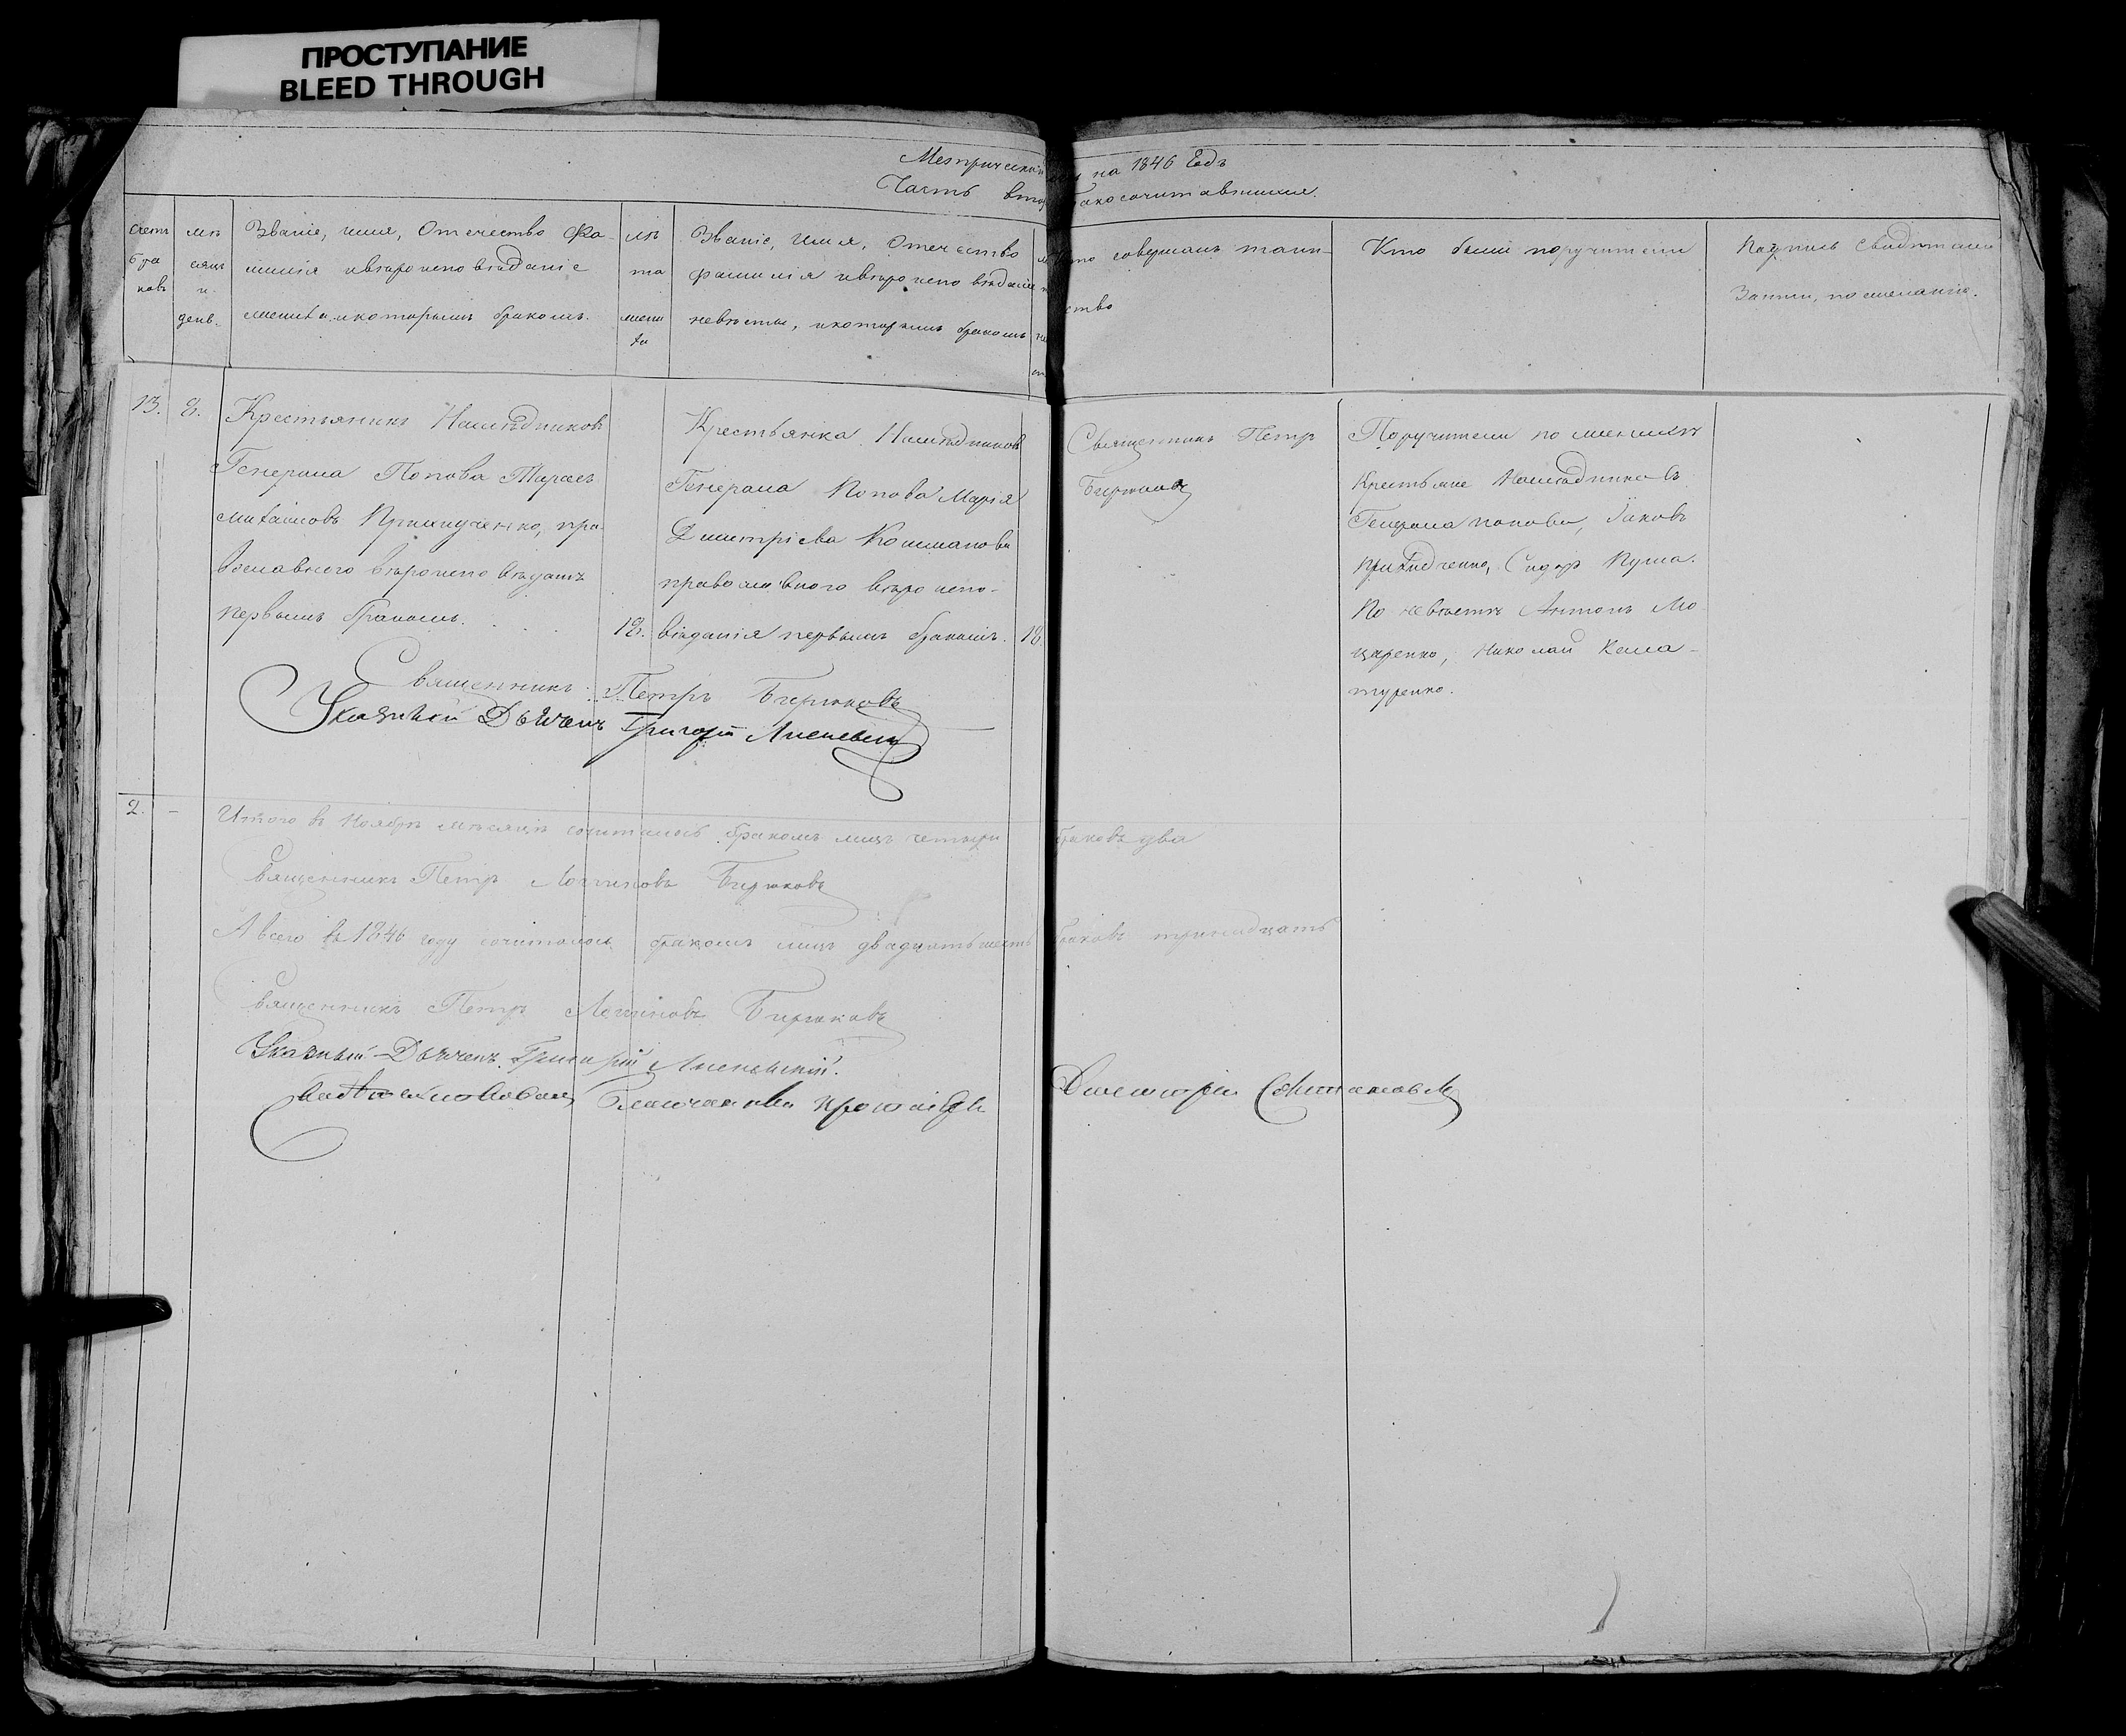 ПРОСТУПАНИЕ
BLEED THROUGH
Метрической на 1846 Годъ
Часть втор бракосочитавшихся.
Счетъ браковъ
мѣсяцъ и день.
Званіе, имя, Отечество Фа-
милія и вѣроисповѣданіе
жениха и которымъ бракомъ.
лѣта жениха
Званіе, имя, Отечество
фамилія и вѣроисповѣданіе
невѣсты, и которымъ бракомъ
то совершалъ таин-
ство
Кто были поручители
Подпись свидѣтелей
Записи, по желанію.
13. 8.
Крестьянинъ Наслѣдниковъ
Генерала Попова Тарасъ
Михайловъ, пра-
вославнаго вѣроисповѣданія
первымъ бракомъ.
18.
Крестьянка Наслѣдниковъ
Генерала Попова Марія
Димитріева
православного вѣроиспо-
вѣданія первымъ бракомъ.
18.
Священникъ Петръ
Бирюковъ
Поручители по женихѣ
Крестьяне Наслѣдниковъ
Генерала Попова, Іаковъ
Сидоръ
По невѣстѣ Антонъ Мо
царенко, Николай Кала-
туренко.
Священникъ Петръ Бирюковъ
Указный Дьячекъ Григорій
2. -
Итого въ Ноябрѣ мѣсяцѣ сочиталось бракомъ лицъ четыри браковъ два
Священникъ Петръ Логиновъ Бирюковъ
А всего въ 1846 году сочиталось бракомъ лицъ двадцать шесть браковъ тринадцать
Священникъ Петръ Логиновъ Бирюковъ
Указный Дьячекъ Григорій